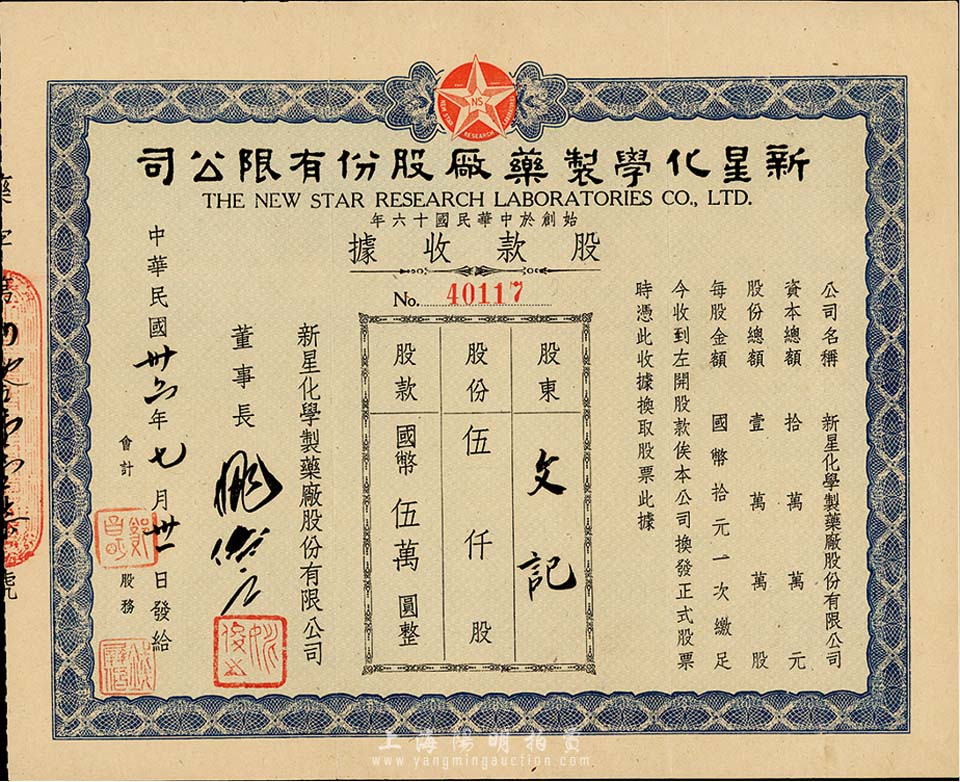 NEW STAR RESEARCH LABORATORIES
NS
新星化學製藥廠股份有限公司
THE NEW STAR RESEARCH LABORATORIES CO., LTD.
始創於中華民國十六年
股款收據
No. 40117
公司名稱 新星化學製藥廠股份有限公司
資本總額 拾萬萬元
股份總額 壹萬萬股
每股金額 國幣拾元一次繳足
今收到左開股款俟本公司換發正式股票
時憑此收據換取股票此據
股東 文記
股份 伍仟股
股款 國幣伍萬圓整
新星化學製藥廠股份有限公司
董事長
中華民國卅六年七月卅一日發給
會計
股務
藥字第
號
上海陽明拍賣
www.yangmingauction.com